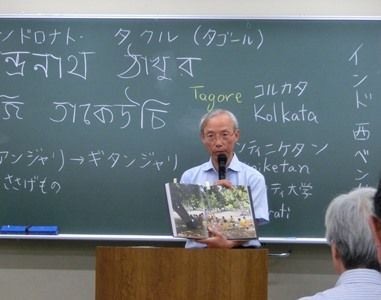 ンドロナト・ タクル (タゴール)
ন্দ্রনাথ ঠাকুর
Tagore コルカタ
Kolkata
アンジャリ) → ギタンジャリ
ささげもの
ンティニケタン
iketan
ティ大学
rati
インド西ベン